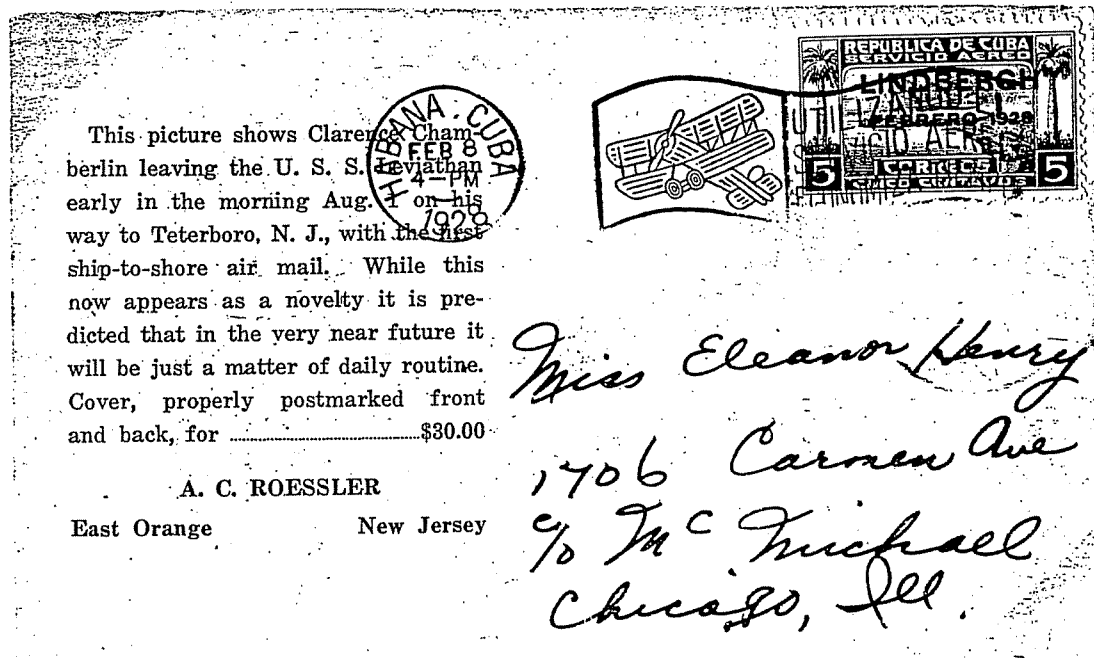 This picture shows Clarence Cham-
berlin leaving the U. S. S. Leviathan
early in the morning Aug. 1 on his
way to Teterboro, N. J., with the first
ship-to-shore air mail. While this
now appears as a novelty it is pre-
dicted that in the very near future it
will be just a matter of daily routine.
Cover, properly postmarked front
and back, for ........................................$30.00
A. C. ROESSLER
East Orange New Jersey
HABANA. CUBA
FEB 8
4-PM
1928
REPUBLICA DE CUBA
SERVICIO AEREO
LINDBERGH
FEBRERO 1928
UTILIZAD EL
SERVICIO AEREO
CORREOS
5 CINCO CENTAVOS 5
Miss Eleanor Henry
1706 Carmen Ave
c/o Mc Michael
Chicago, Ill.